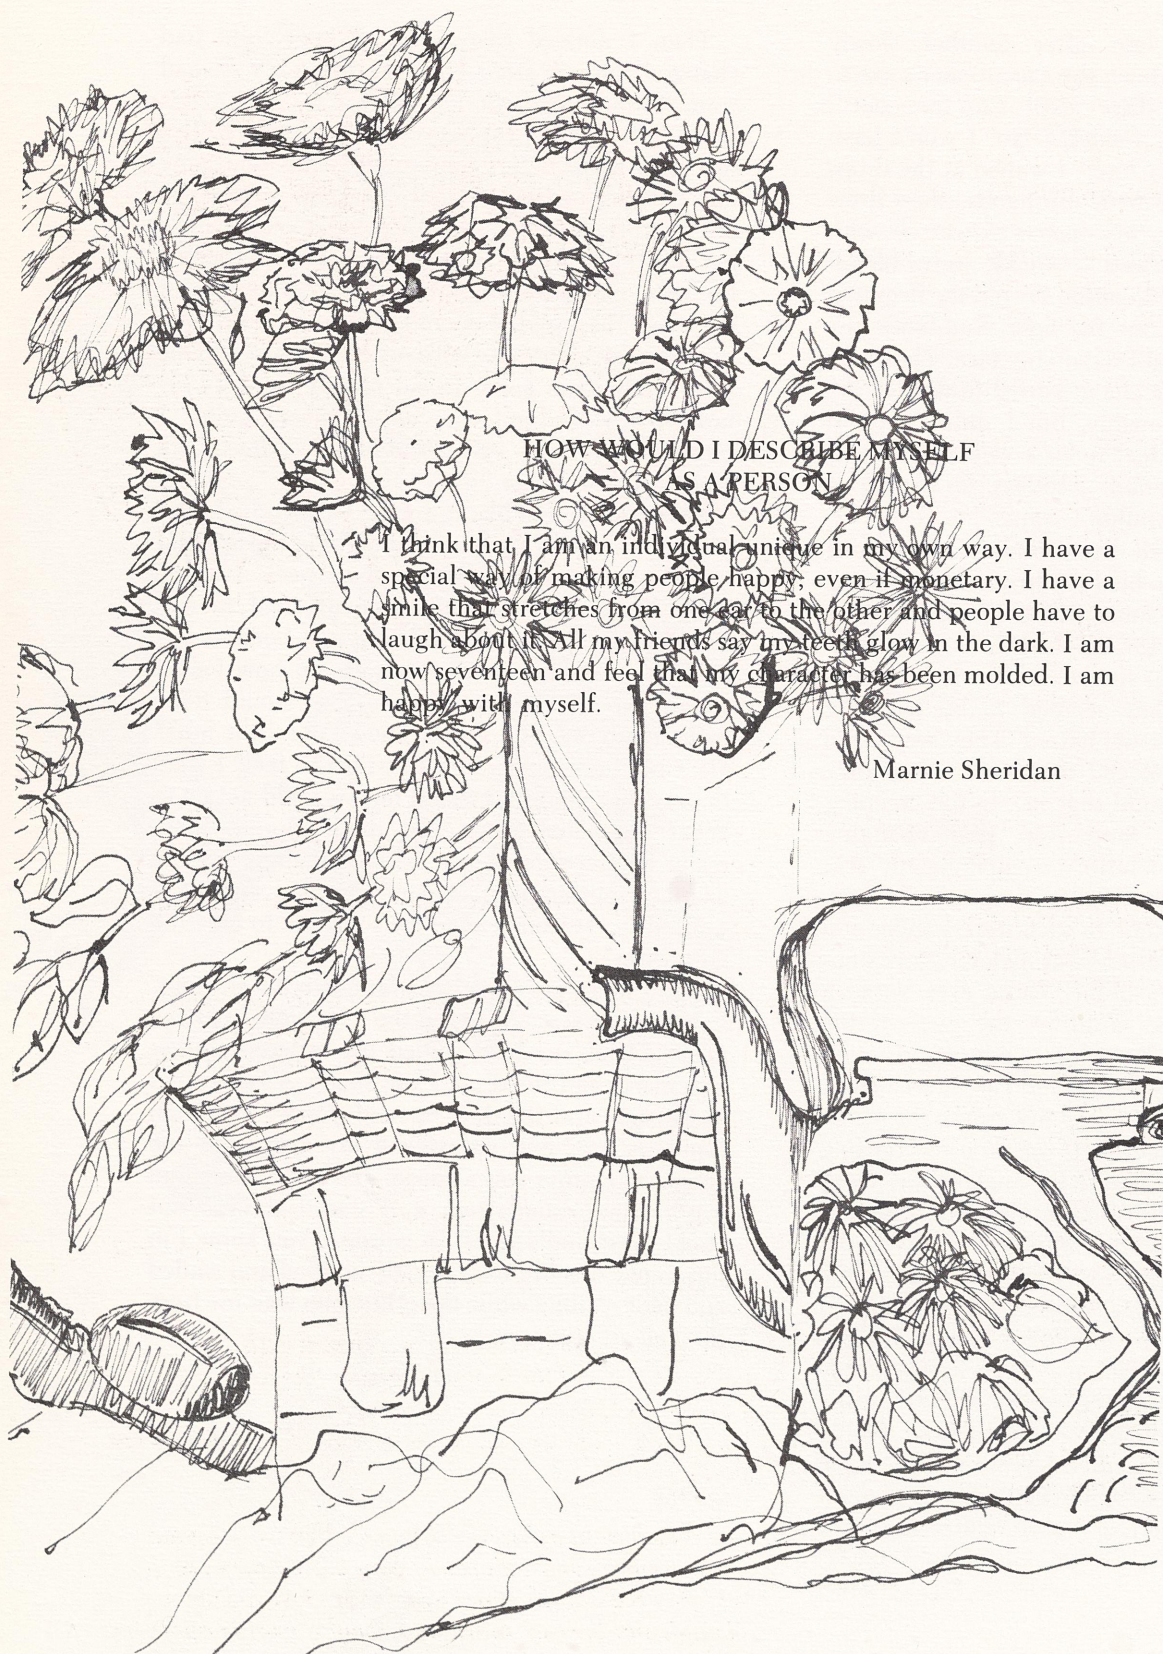 HOW WOULD I DESCRIBE MYSELF
AS A PERSON
I think that I am an individual unique in my own way. I have a
special way of making people happy, even if monetary. I have a
smile that stretches from one ear to the other and people have to
laugh about it. All my friends say my teeth glow in the dark. I am
now seventeen and feel that my character has been molded. I am
happy with myself.
Marnie Sheridan